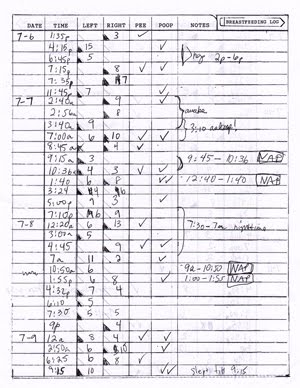 BREASTFEEDING LOG
DATE TIME LEFT RIGHT PEE POOP NOTES
7-6 1:35p 3 ✓
4:15p 15 ✓
6:45p 5 2p-6p
7:15p 8 ✓ ✓
7:35p 7
11:45p 7 ✓
7-7 2:40a 9 ✓
2:56a 8 awake
3:40a 9
7:00a 6 10 ✓ ✓
8:45a 4 ✓
9:15a 3 9:45-10:36 NAP
10:36a 4 3 ✓ ✓
1:40 6 8 ✓✓ 12:40-1:40 NAP
3:24 4 6
5:00p 9 3 ✓
7:10p 6 9
7-8 12:20a 6 13 ✓ 7:30-7a nighttime
3:07a 5
4:45 9 ✓ ✓
7a 11 2 ✓
10:50a 6 9a-10:50 NAP
1:55p 6 8 ✓ 1:00-1:55 NAP
4:32p 7 4
6:10 5
7:30 5 5
9p 4
7-9 12a 8 4 ✓ ✓
2:50a 6 10 ✓
6:25 6 8 ✓
9:15 10 ✓✓ slept till 9:15